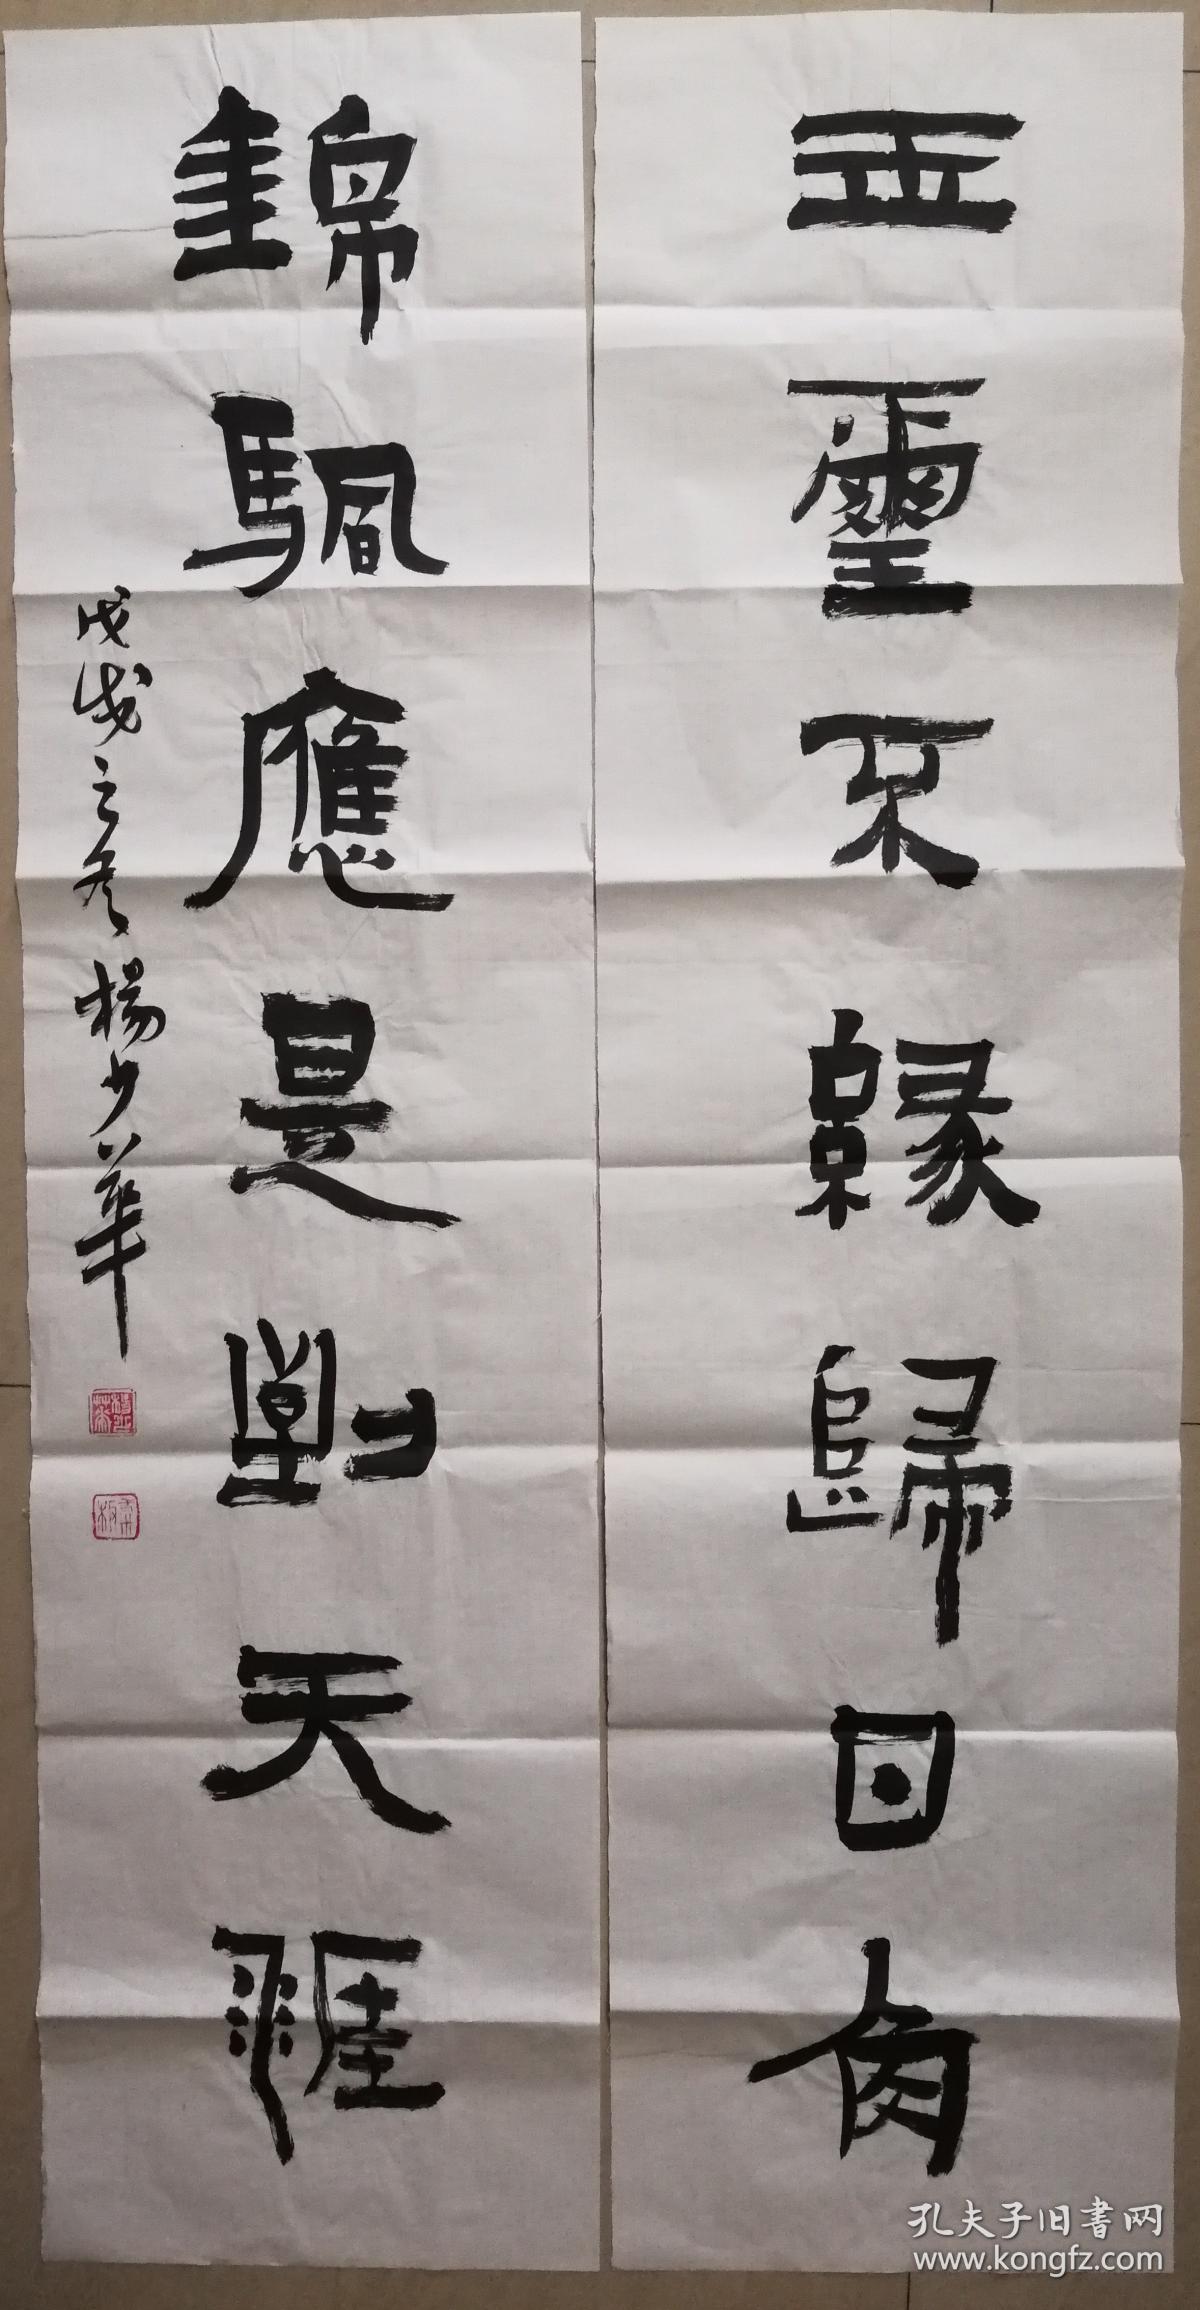 玉璽不緣歸日角
錦颿應是到天涯
戊戌之冬 楊少華
孔夫子旧書网
www.kongfz.com